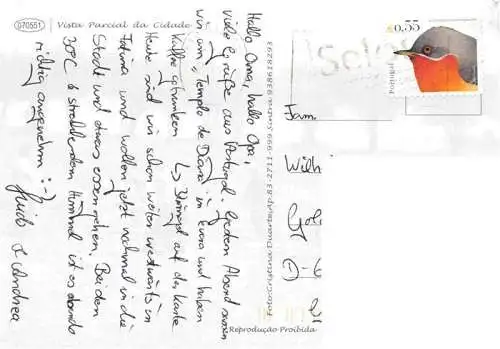 070551
Vista Parcial da Cidade
Hallo Oma, hallo Opa,
viele Grüße aus Portugal. Jeden Abend waren
wir am "Templo de Diana" in Evora und haben
Kaffee getrunken. ↳ Bild auf der Karte
Heute sind wir schon weiter westwärts in
Fatima und wollen jetzt nochmal in die
Stadt und etwas essen gehen. Bei den
30°C & strahlendem Himmel ist es abends
richtig angenehm :-)
Guido & Andrea
Foto: Cristina Duarte
Reprodução Proibida
0,55
Portugal
Fam.
Wilh